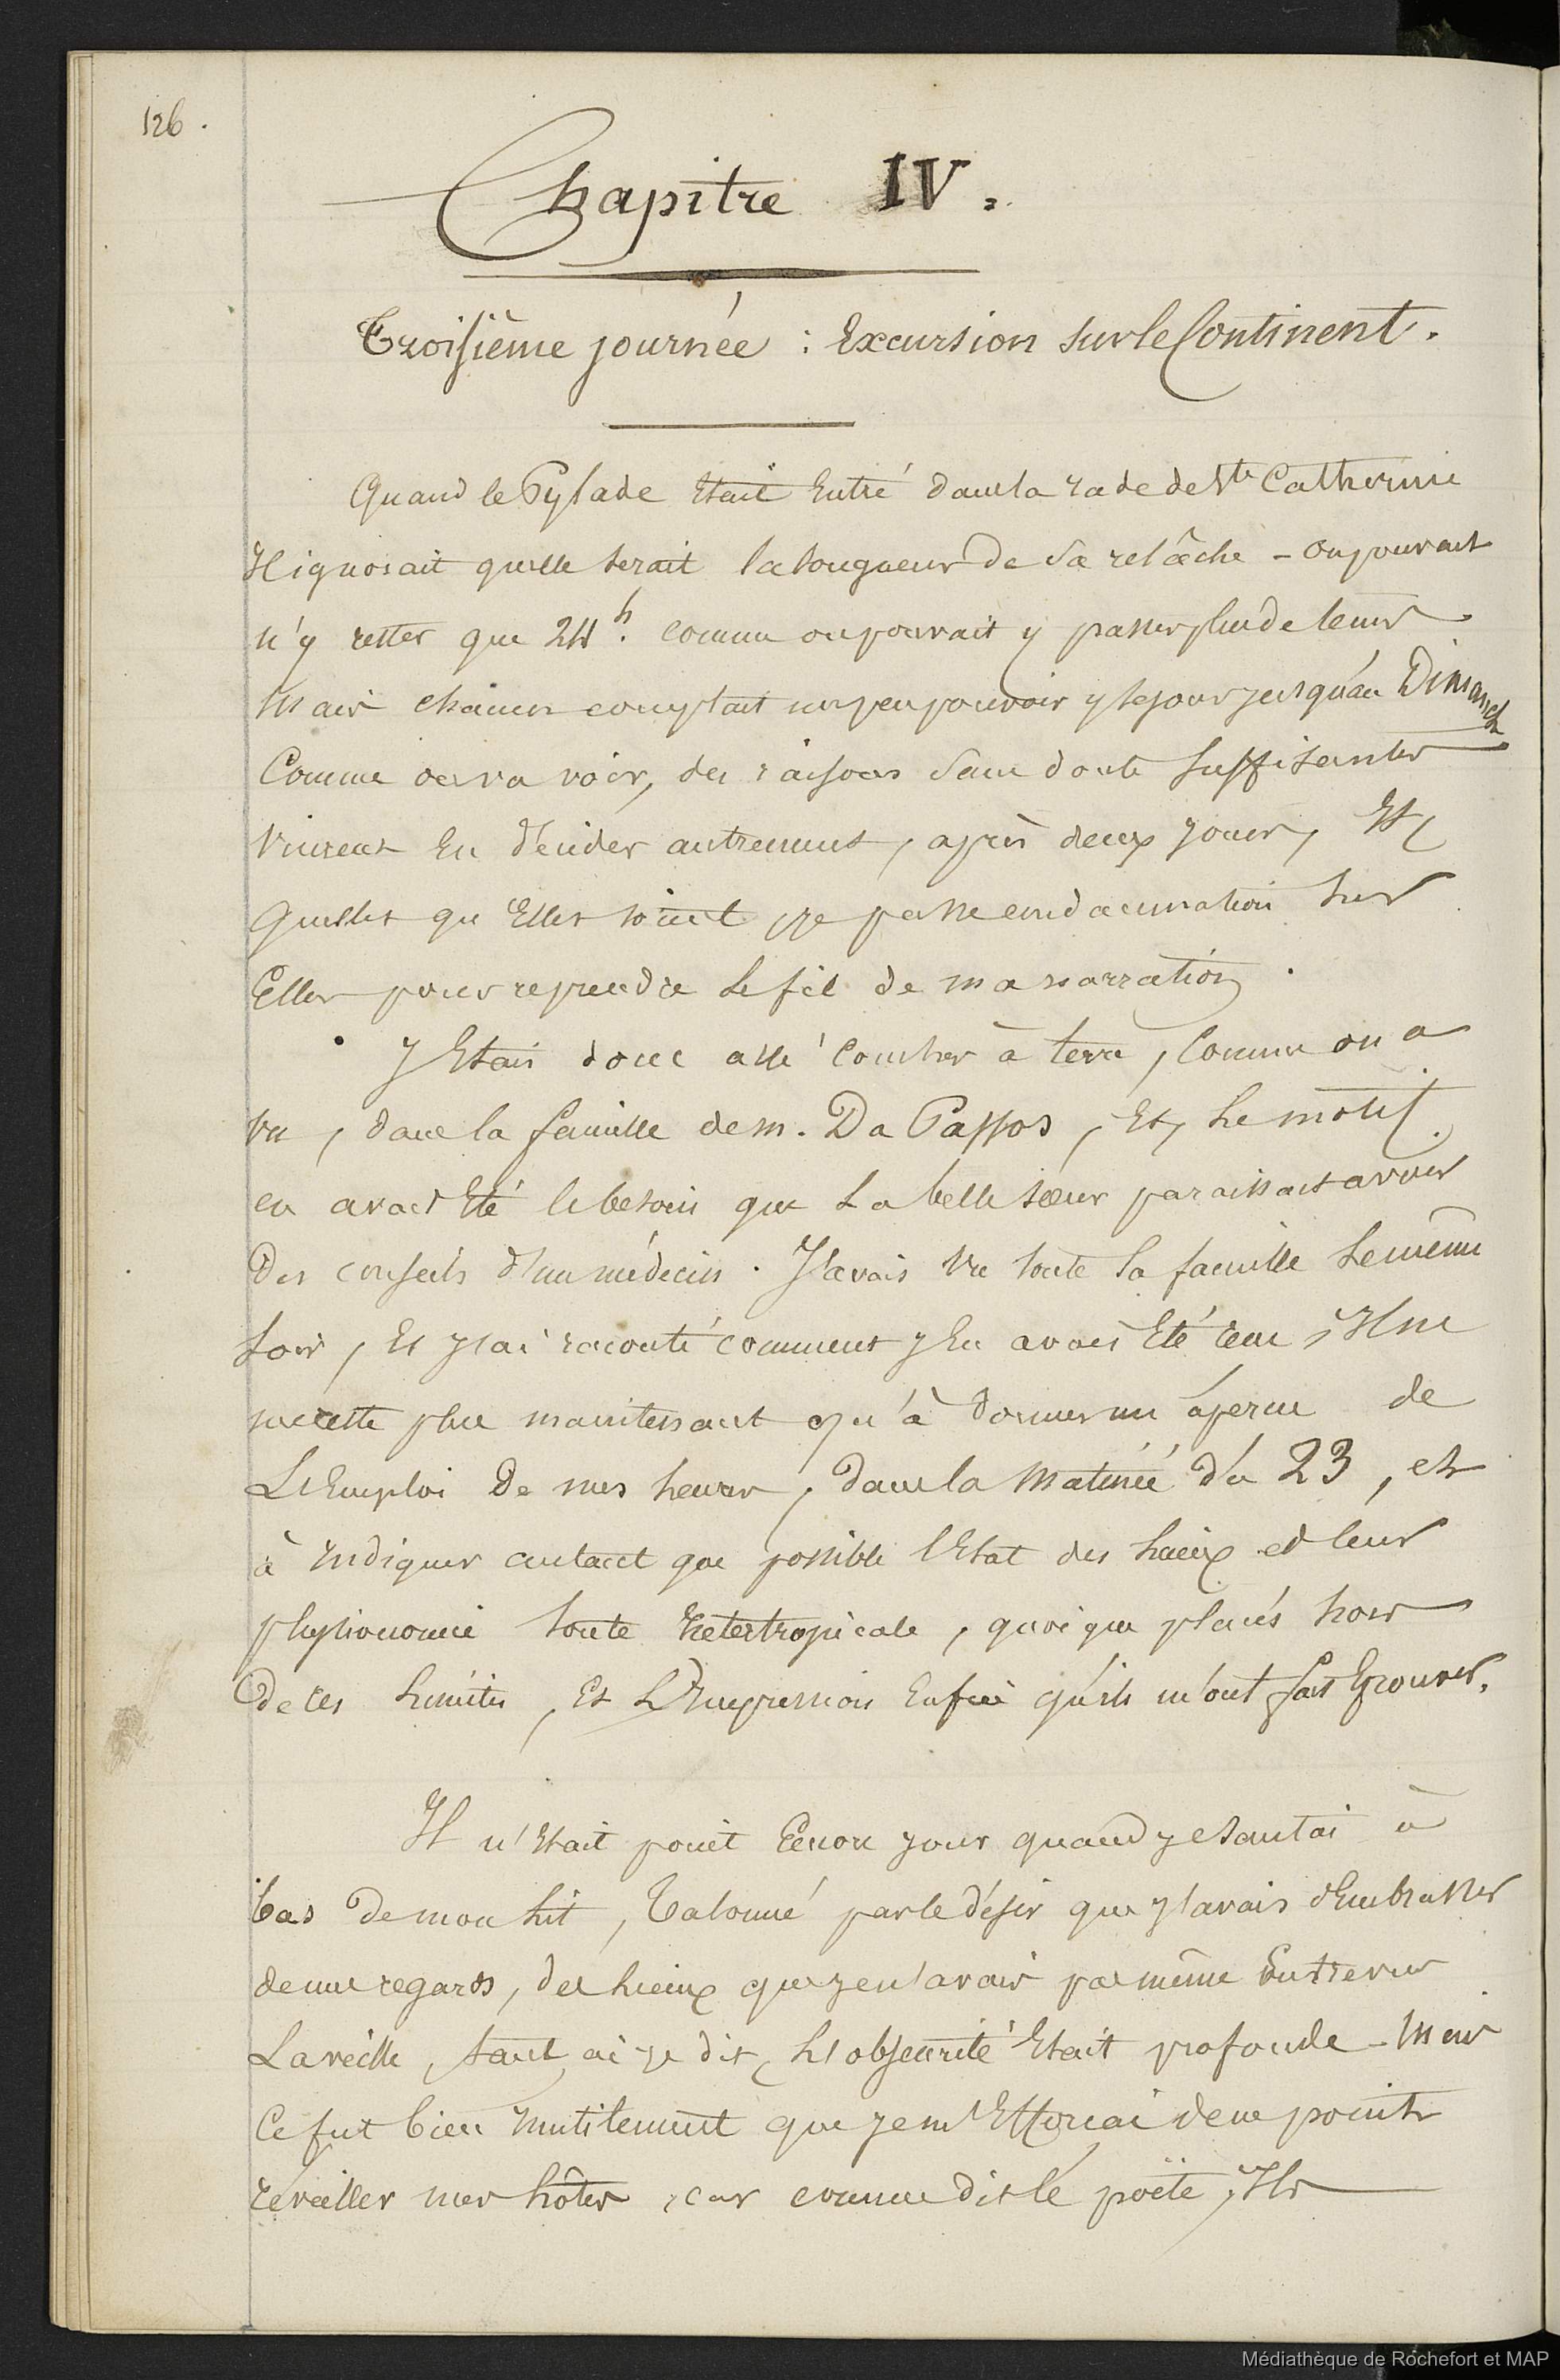 126.
Chapitre IV.
Troisième journée : Excursion sur le Continent.
Quand le Pylade Etait Entré dans la rade de Ste Catherine
Il ignorait quelle serait la longueur de sa relâche - on pouvait
n'y rester que 24h. comme on pouvait y passer plus de tems
Mais chacun comptait un peu pouvoir y sejour jusqu'au Dimanch
Comme on va voir, des raisons sans doute suffisantes
vinrent En décider autrement, après deux jours, Et,
quelles qu'Elles soient, je passe condamnation sur
Elles pour reprendre le fil de ma narration.
J'Etais donc allé coucher à terre, comme on a
vu, dans la famille de m. Da Passos, Et, le motif
en avait Eté le besoin que la belle sœur paraissait avoir
Des conseils d'un médecin. J'avais vu toute la famille le même
soir, Et j'ai raconté comment j'En avais Eté reçu, Il ne
me reste plus maintenant qu'à donner un aperçu de
L'Emploi De mes heures, dans la Matinée du 23, et
à Indiquer autant que possible l'Etat des lieux et leur
physionomie toute intertropicale, quoique placés hors
De ces limites, Et L'Impression Enfin qu'ils m'ont fait Eprouver.
Il n'Etait point Encore jour quand je sautai à
bas De mon lit, Talonné par le désir que j'avais d'Embrasser
de mes regards, des lieux que je n'avais pas même Entrevus
La veille, tant, ai-je dit, L'obscurité Etait profonde - Mais
Ce fut bien Inutilement que je m'Efforcai de ne point
réveiller mes hôtes, car comme dit le poëte, Ils
Médiathèque de Rochefort et MAP